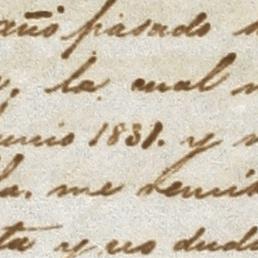 año pasado
la cual
unio 1831. y
la. me remi
ta y no dud